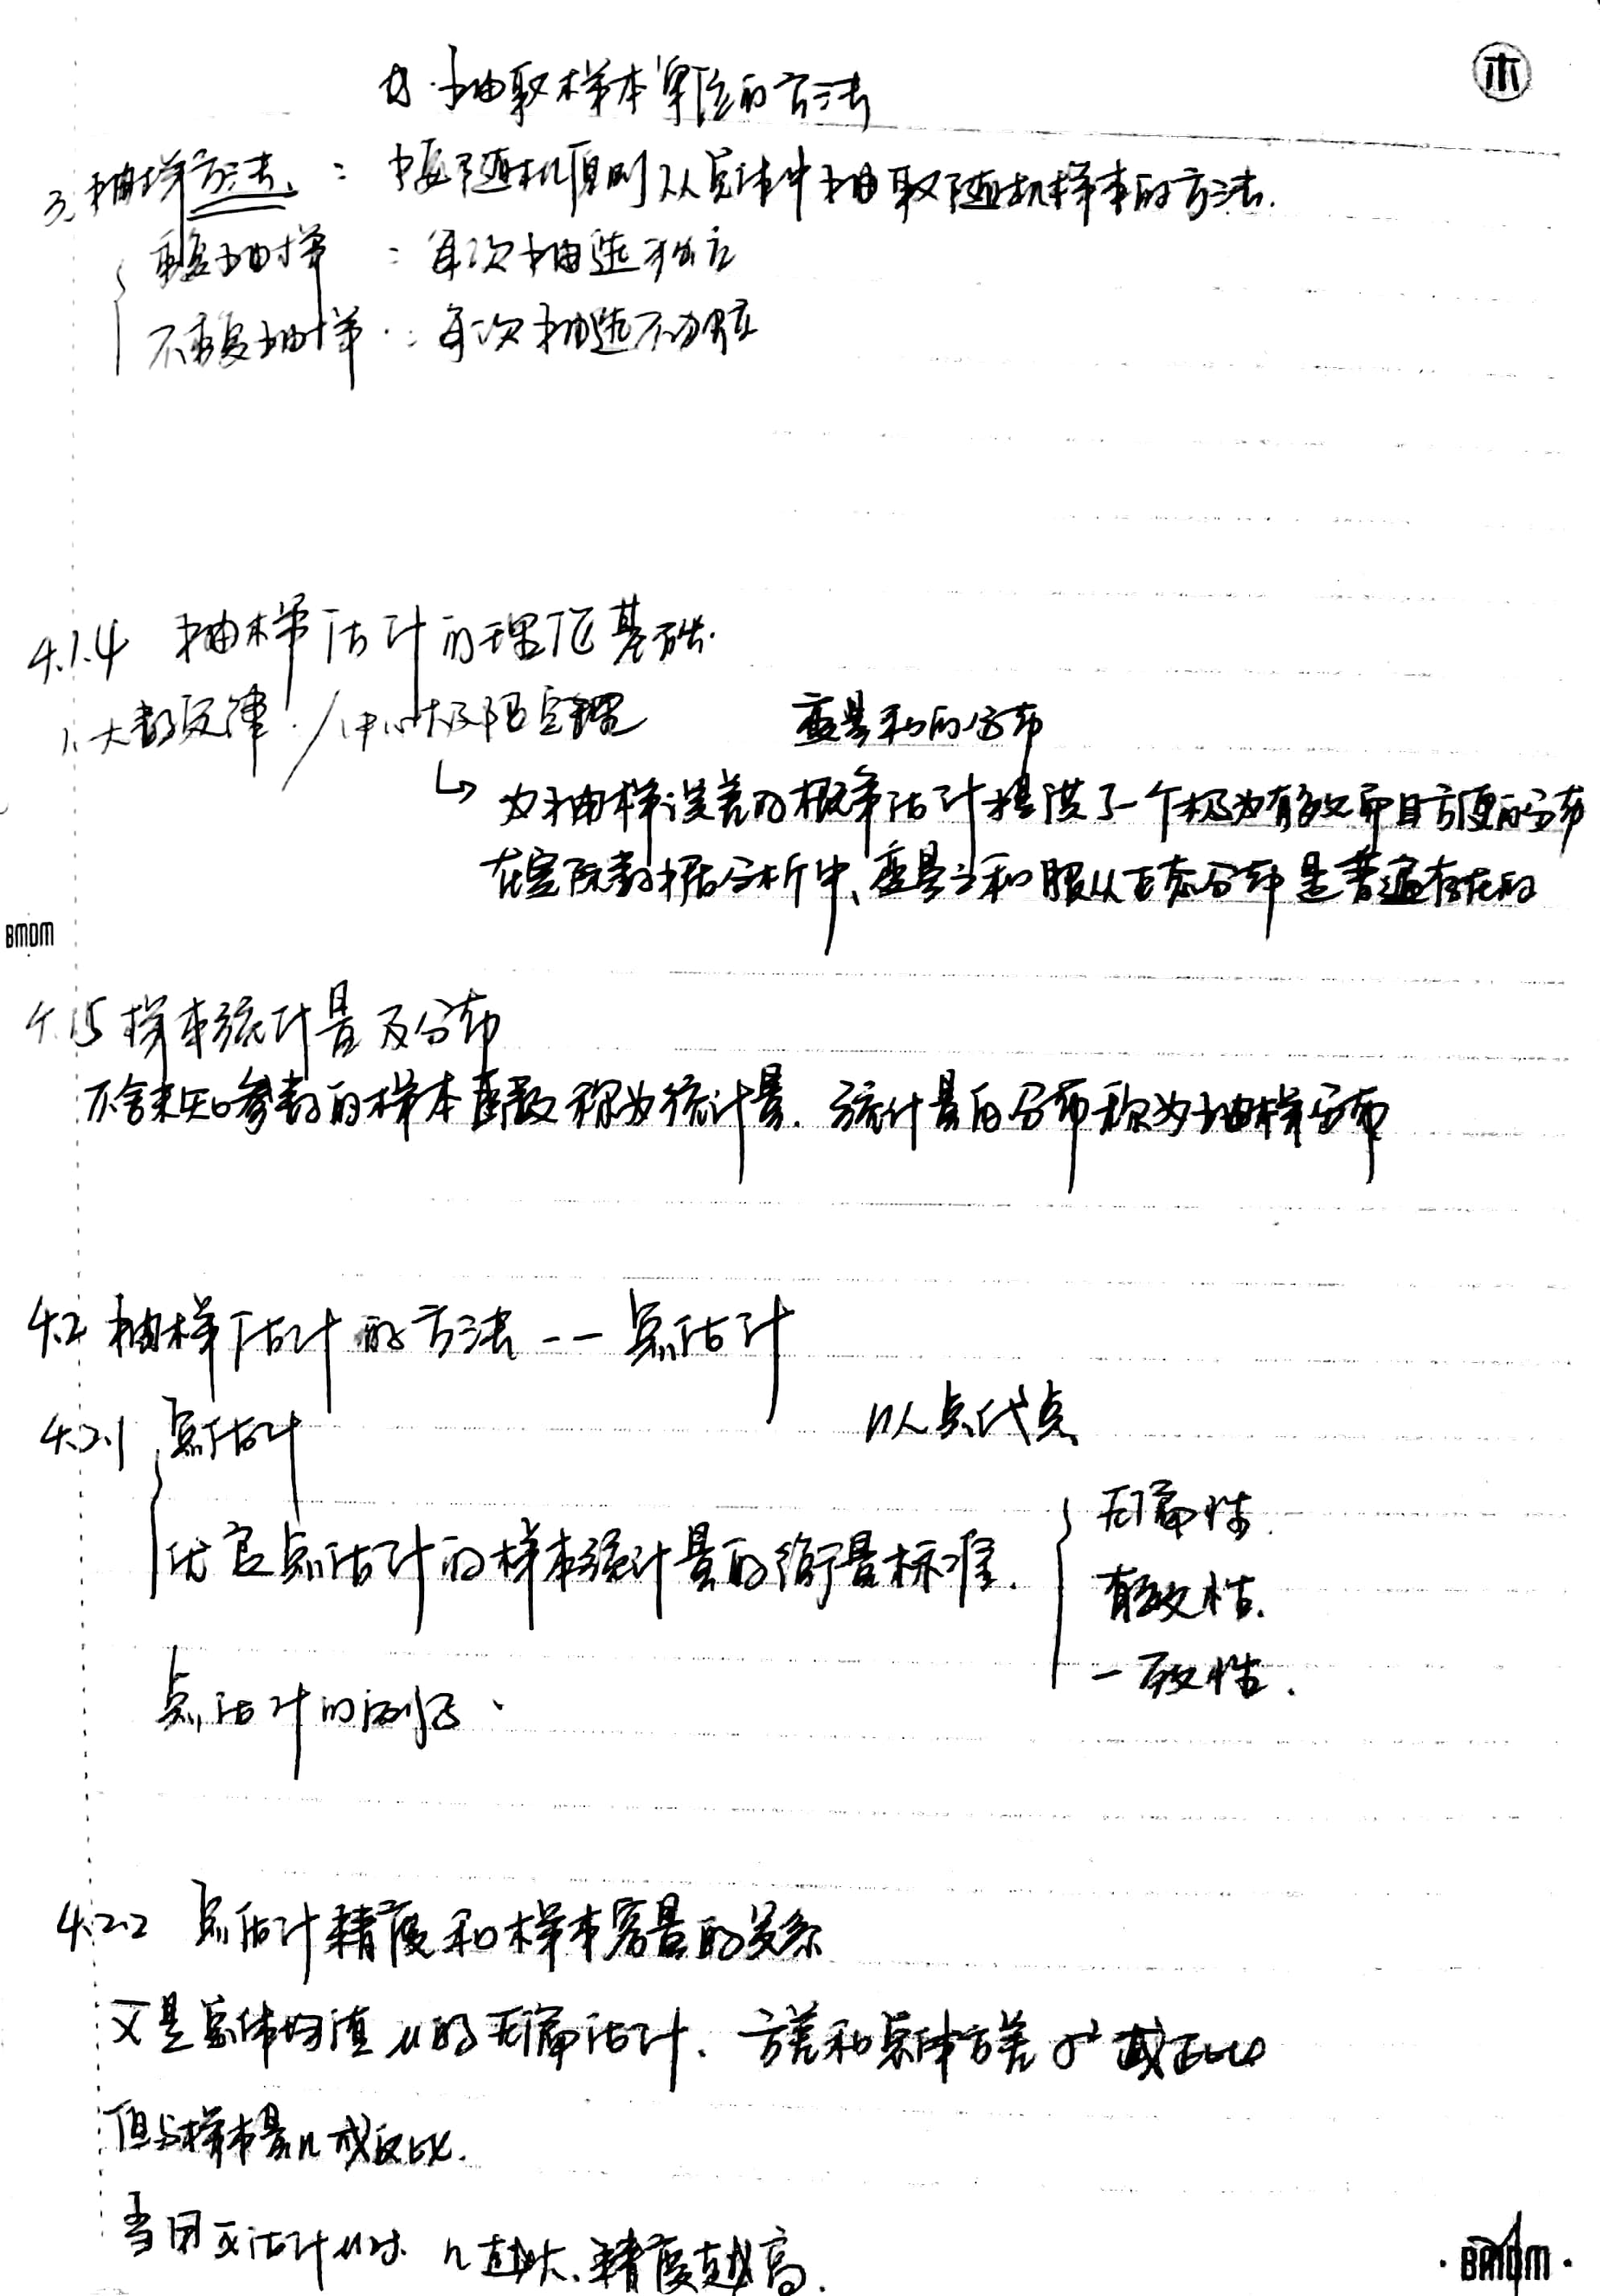 抽取样本单位的方法
3. 抽样方法：按随机原则从总体中抽取随机样本的方法.
重复抽样：每次抽选独立
不重复抽样：每次抽选不独立
4.1.4 抽样估计的理论基础.
1. 大数定律 / 中心极限定理
变量和的分布
↳ 为抽样误差的概率估计提供了一个极为有效而且方便的分布
在实际数据分析中、变量之和服从正态分布是普遍存在的
BMDM
4.1.5 样本统计量及分布
不含未知参数的样本函数称为统计量. 统计量的分布称为抽样分布
4.2 抽样估计的方法 -- 点估计
4.2.1 点估计
以点代点
优良点估计的样本统计量的衡量标准.
无偏性.
有效性.
一致性.
点估计的例子、
4.2.2 点估计精度和样本容量的关系
x̄是总体均值μ的无偏估计. 方差和总体方差σ²成正比
但与样本量n成反比.
当用x̄估计μ时. n越大、精度越高.
BMDM